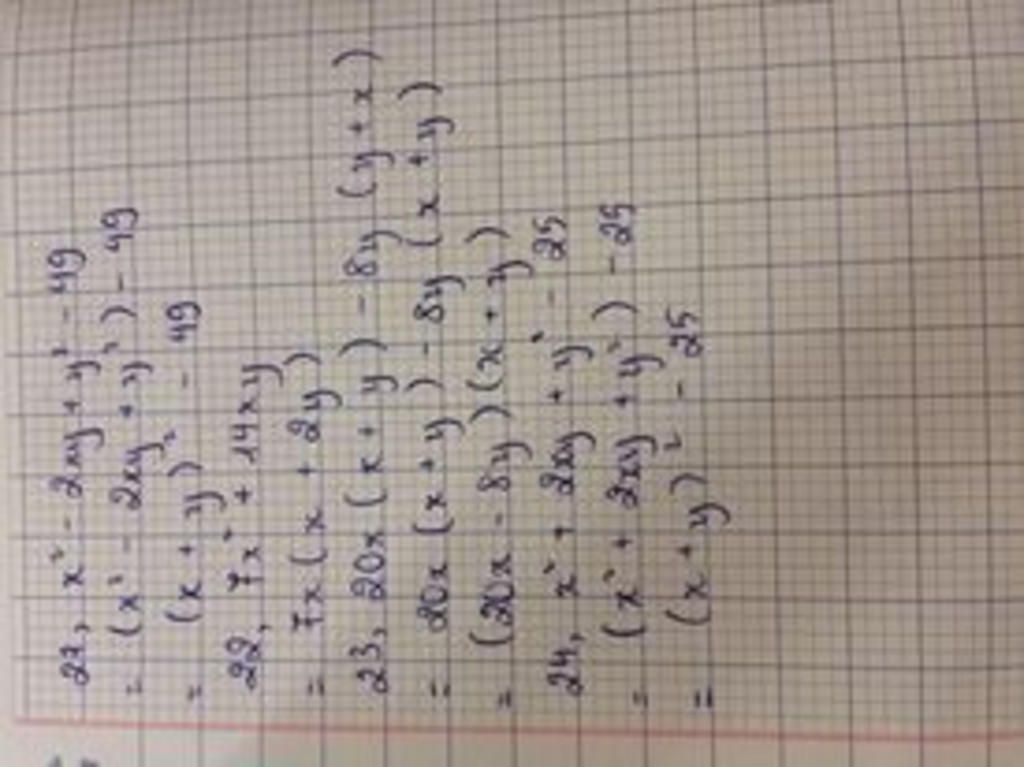 21, x² - 2xy + y² - 49
= (x² - 2xy + y²) - 49
= (x + y)² - 49
22, 7x² + 14xy
= 7x (x + 2y)
23, 20x (x + y) - 8y (y + x)
= 20x (x + y) - 8y (x + y)
= (20x - 8y) (x + y)
24, x² + 2xy + y² - 25
= (x² + 2xy + y²) - 25
= (x + y)² - 25